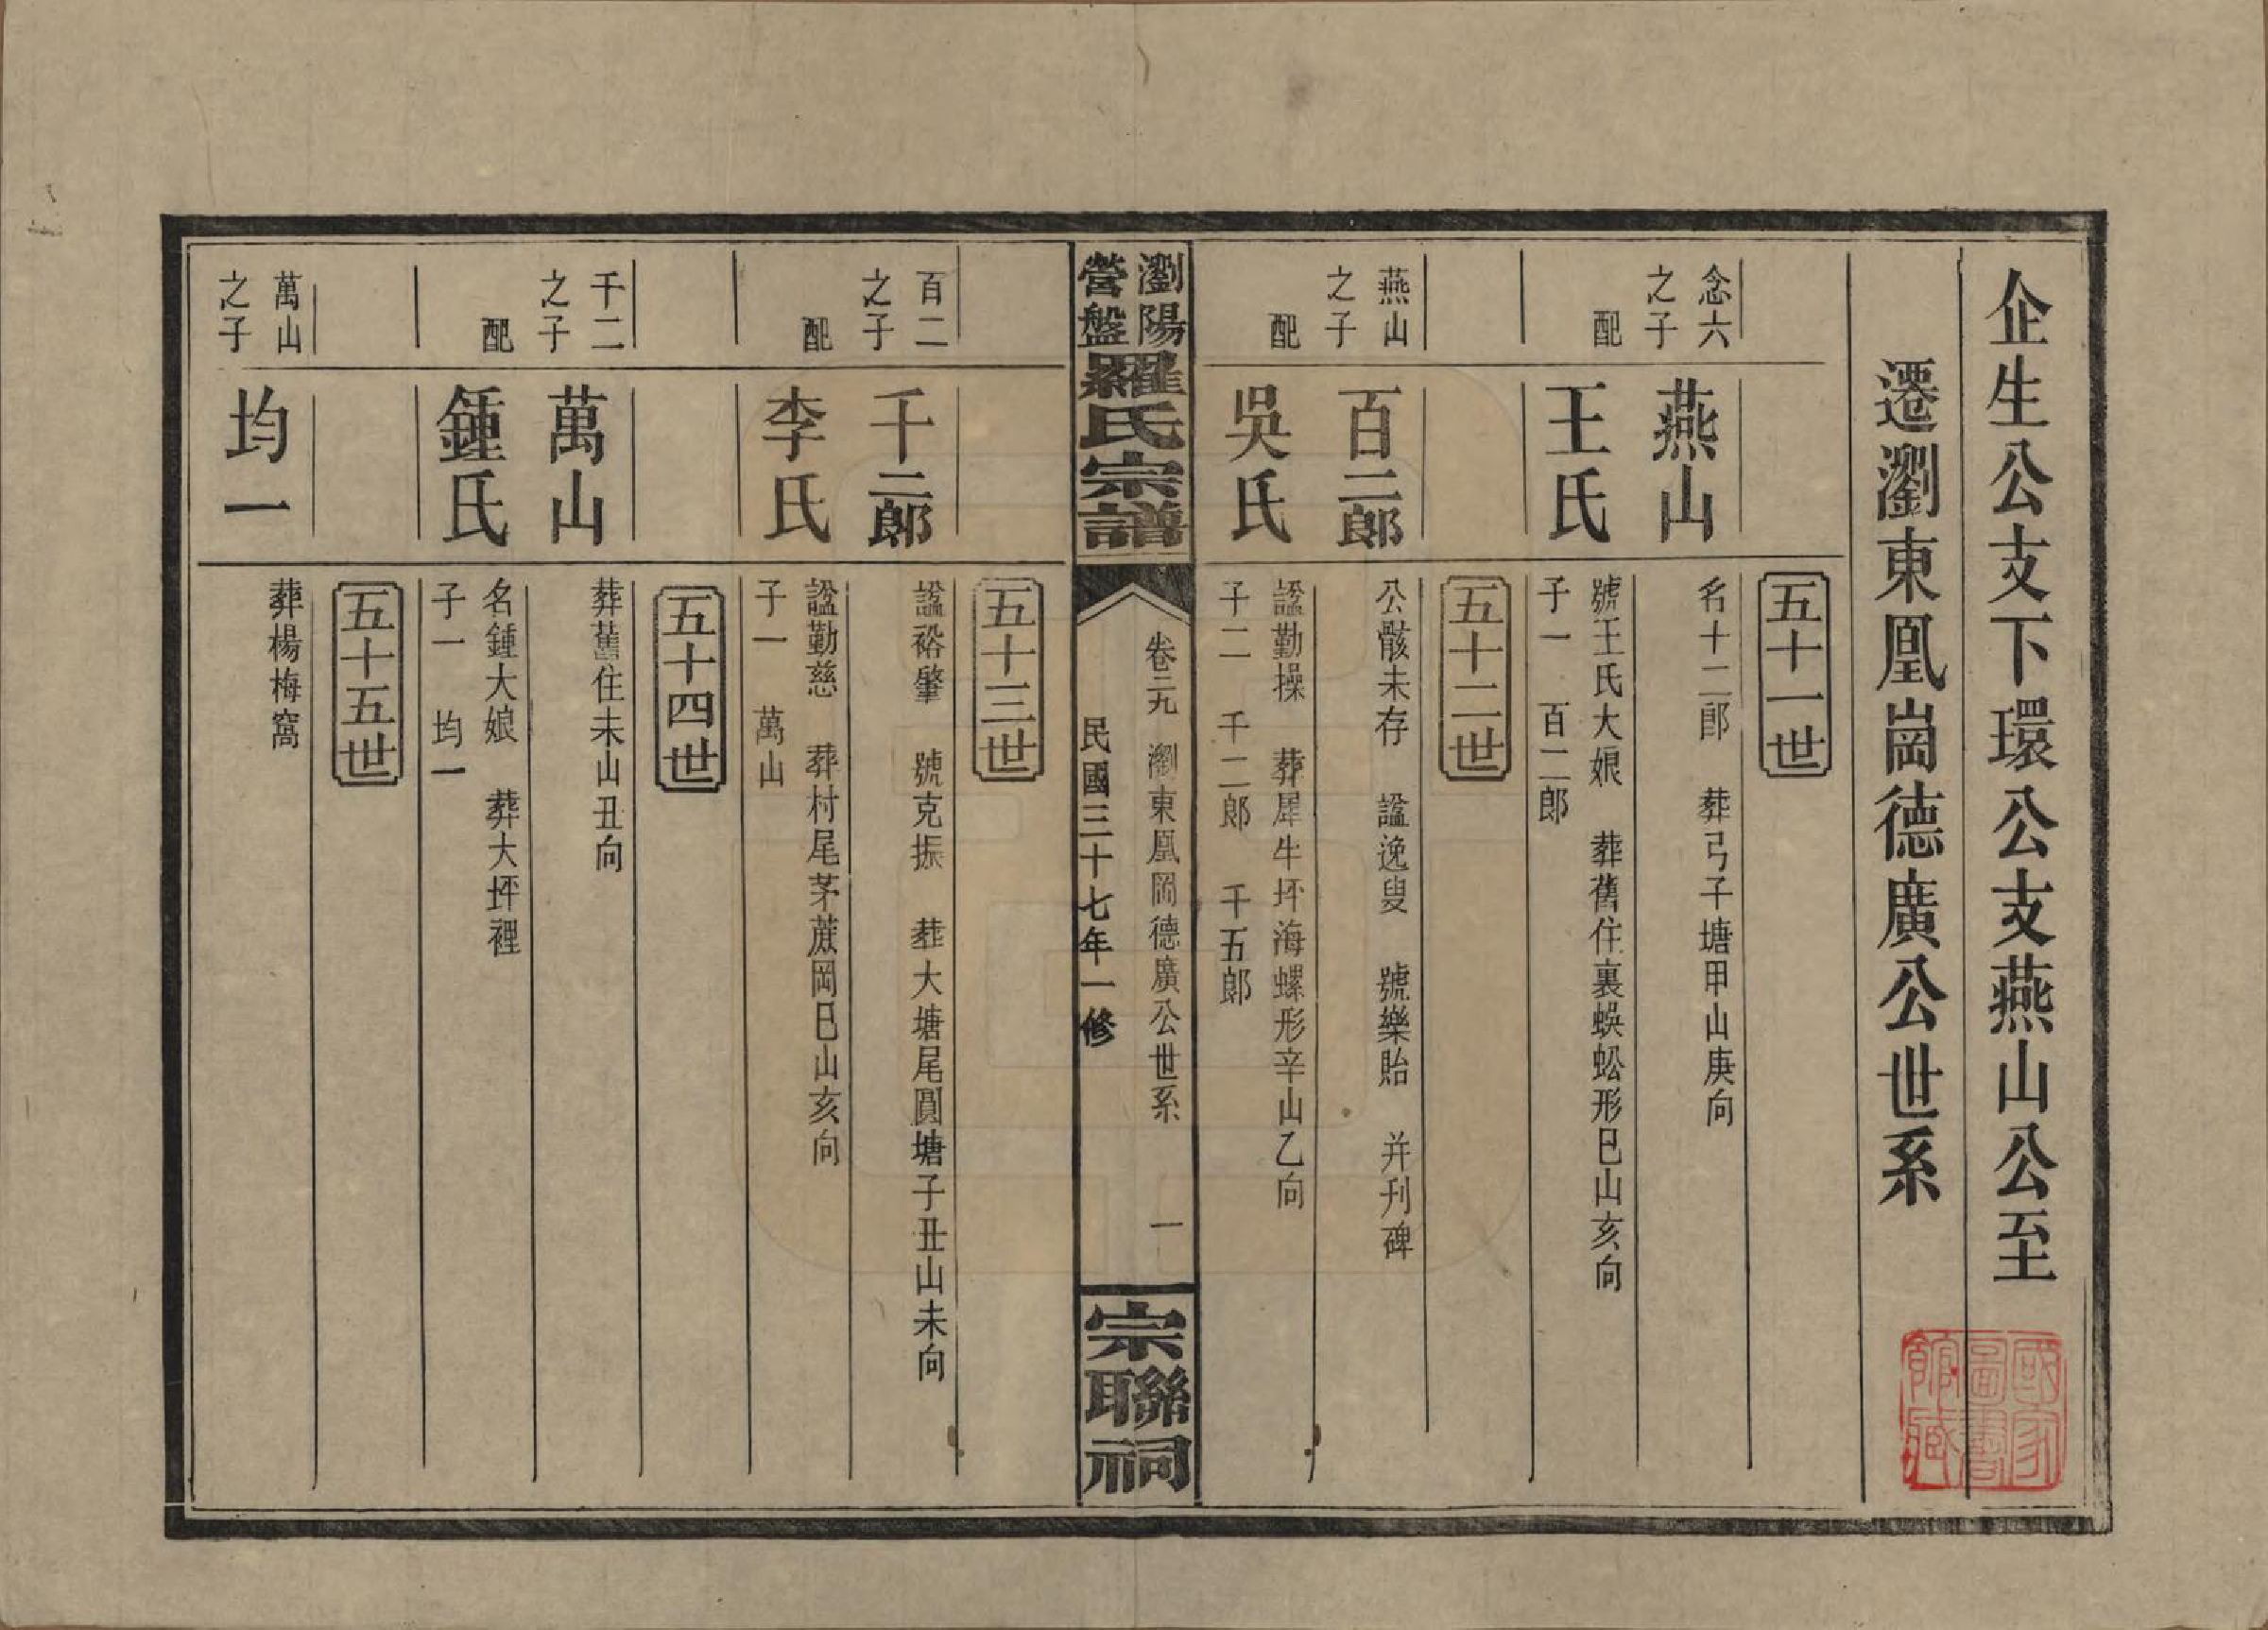 企生公支下環公支燕山公至
遷瀏東凰崗德廣公世系
五十一世
念六之子
燕山
名十二郎　葬弓子塘甲山庚向
配
王氏
號王氏大娘　葬舊住裏蜈蚣形巳山亥向
子一　百二郎
五十二世
燕山之子
百二郎
公骸未存　諡逸叟　號樂貽　并刊碑
配
吳氏
諡勤操　葬犀牛坪海螺形辛山乙向
子二　千二郎　千五郎
瀏陽營盤羅氏宗譜
卷二九　瀏東凰岡德廣公世系　一
民國三十七年一修
宗聯祠
五十三世
百二之子
千二郎
諡裕肇　號克振　葬大塘尾圓塘子丑山未向
配
李氏
諡勤慈　葬村尾茅蔗岡巳山亥向
子一　萬山
五十四世
千二之子
萬山
葬舊住未山丑向
配
鍾氏
名鍾大娘　葬大坪裡
子一　均一
五十五世
萬山之子
均一
葬楊梅窩
國家圖書館藏